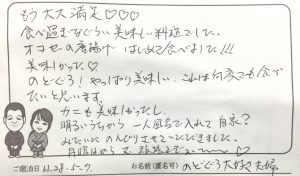 もう大大満足♡♡♡
食べ過ぎなぐらい美味しい料理でした。
オコゼの唐揚げ はじめて食べました!!!
美味しかった♡
のどぐろ! やっぱり美味しい これは何度でも食べ
たいと思います。
カニも美味しかったし
明るいうちから一人風呂で入れて自家?
みたいにのんびりさせていただきました。
ご宿泊日 H.28.5.27
お名前(匿名可) のどぐろ大好き夫婦